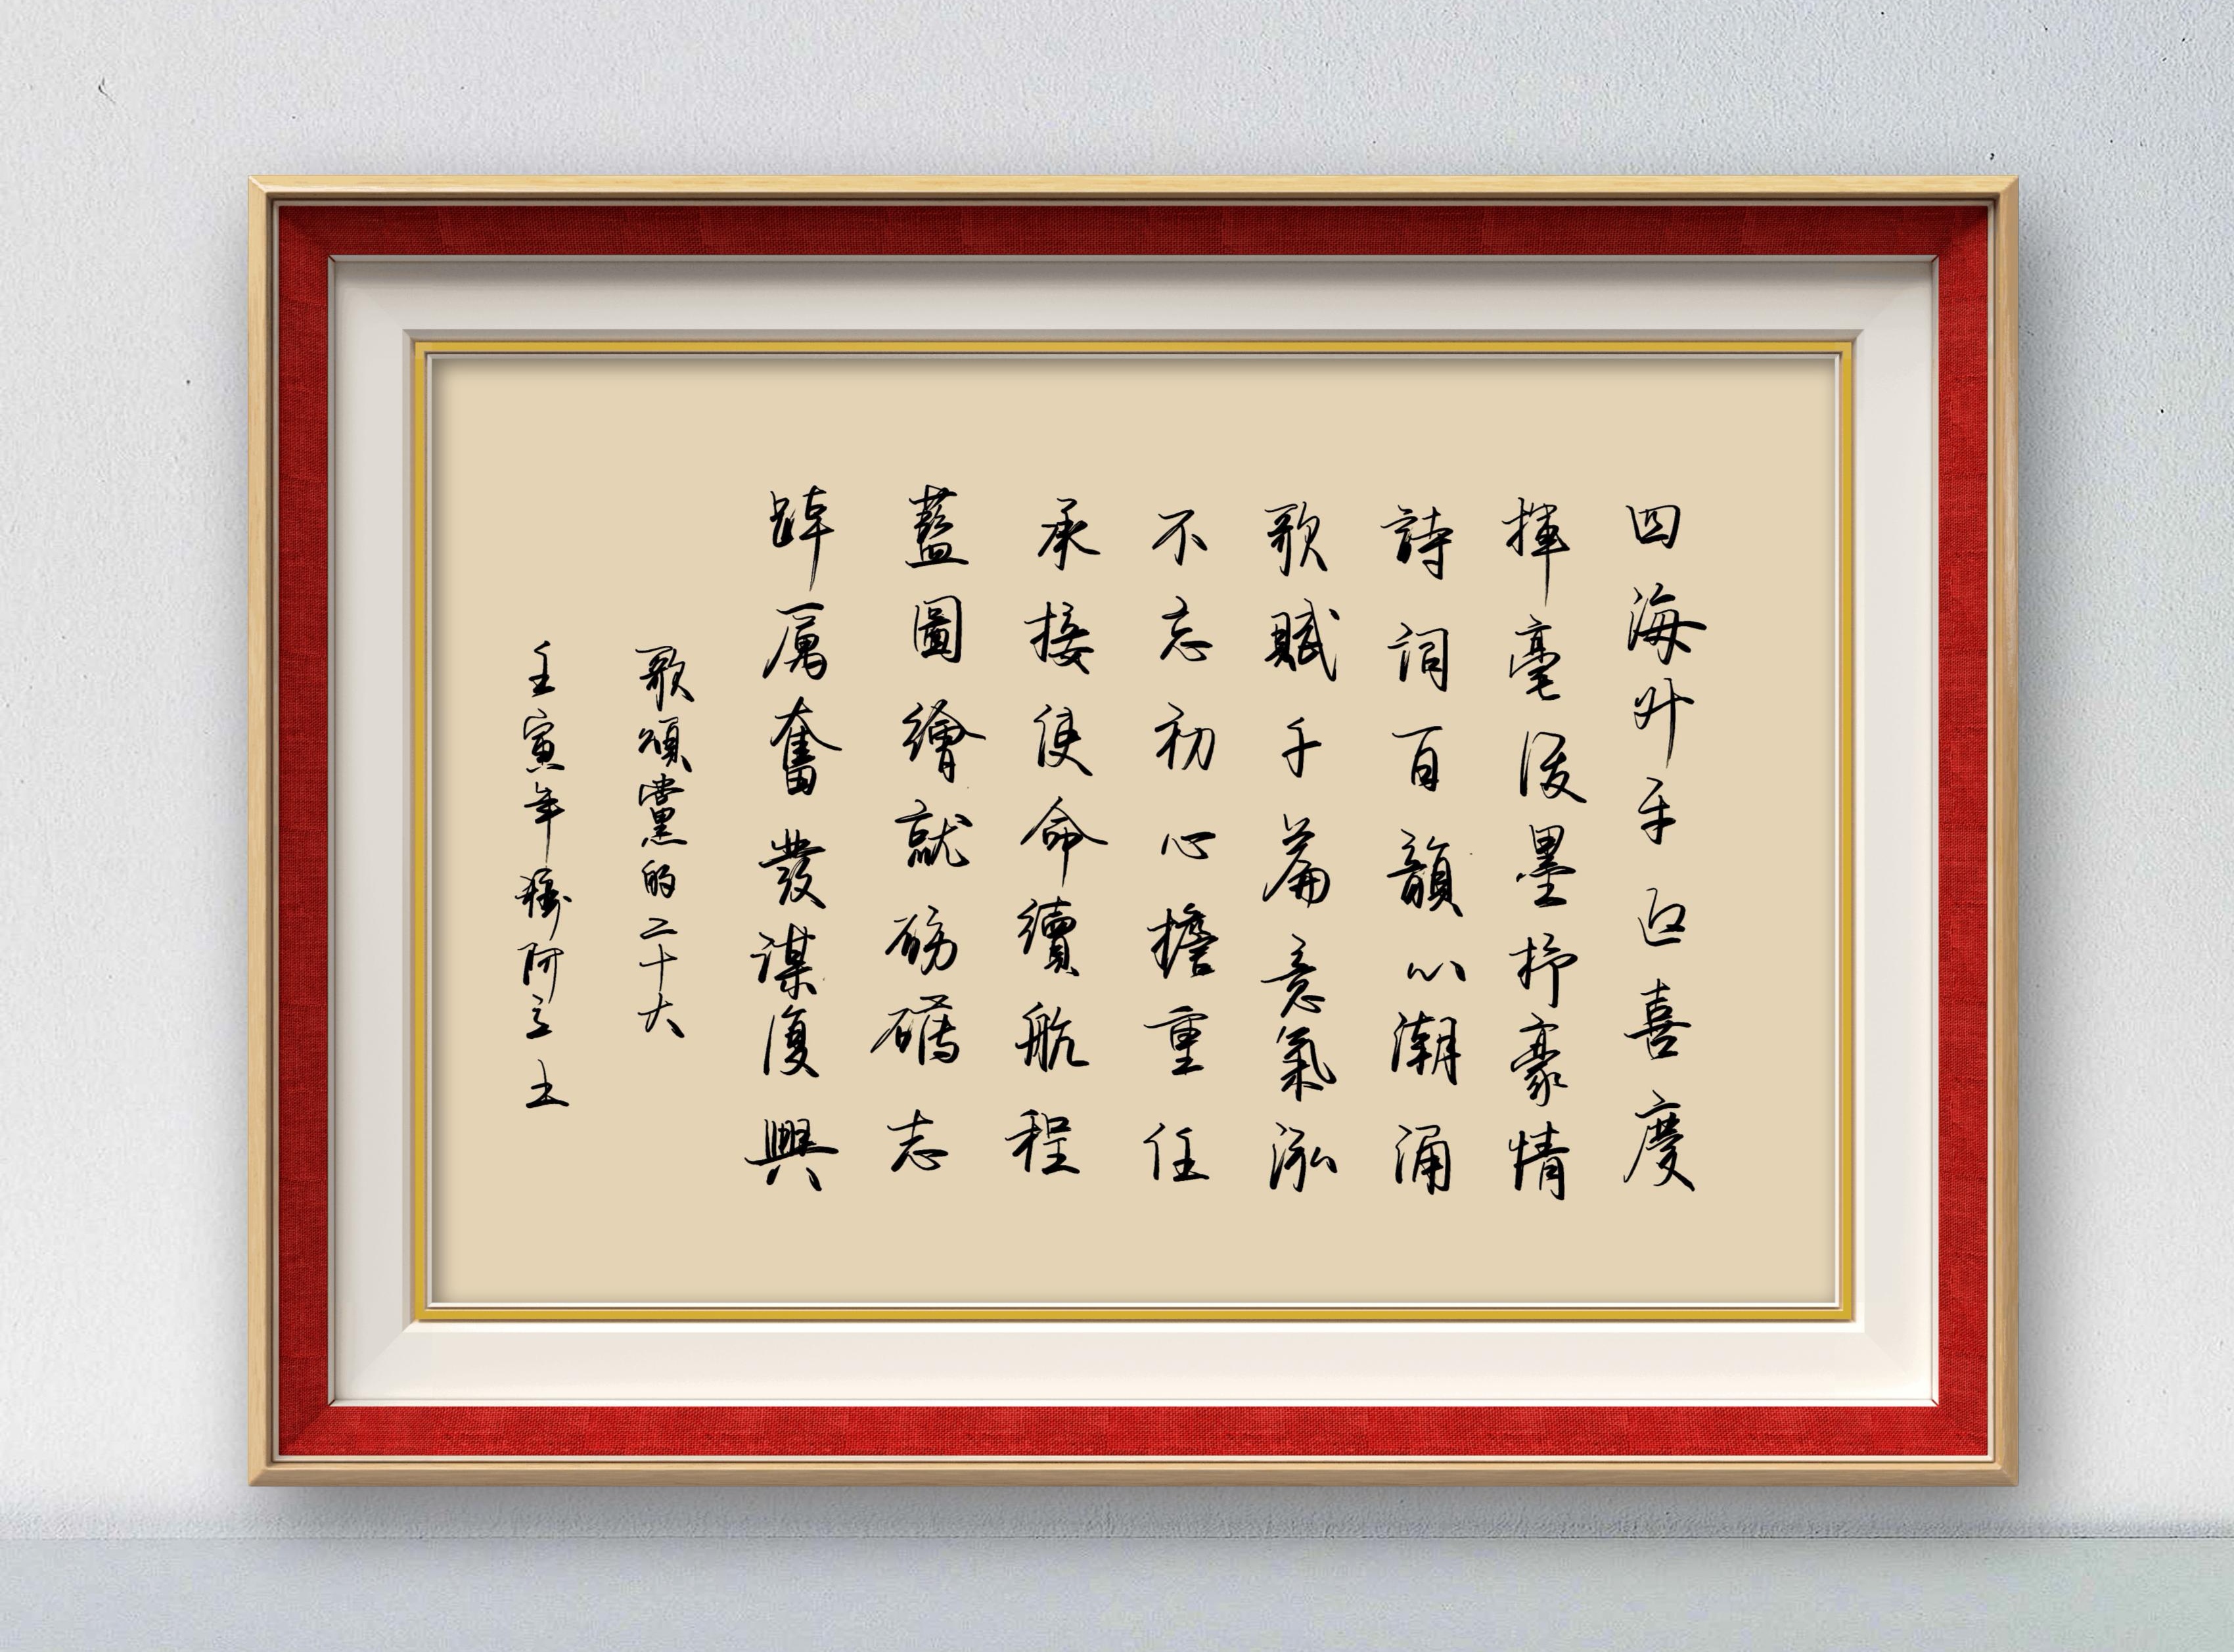 四海升平迎喜慶
揮毫潑墨抒豪情
詩詞百韻心潮涌
歌賦千篇意氣泓
不忘初心擔重任
承接使命續航程
藍圖繪就磅礴志
踔厲奮發謀復興
歌頌黨的二十大
壬寅年秋阿立土